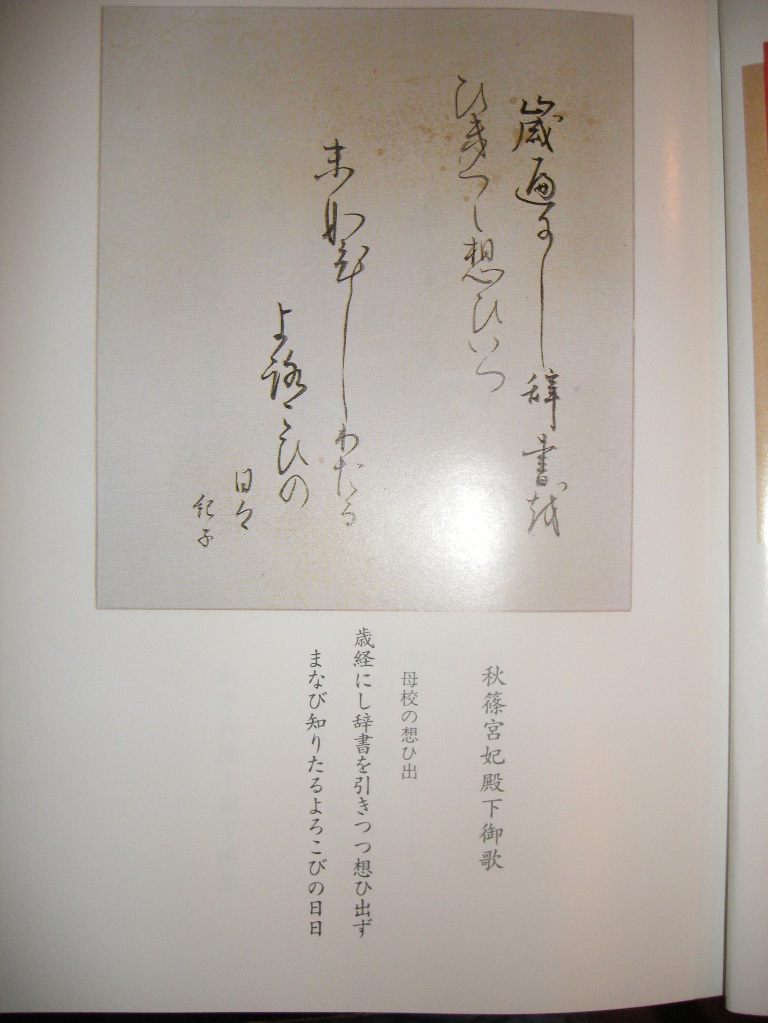 歳遍尓し辞書越
ひきつゝ想ひいつ
末那しりたる
よ路こひの
日々
紀子
秋篠宮妃殿下御歌
母校の想ひ出
歳経にし辞書を引きつつ想ひ出ず
まなび知りたるよろこびの日日